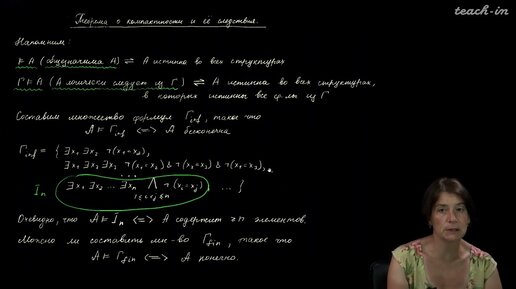 teach-in
Теорема о компактности и её следствия.
Напомним:
⊨ A (общезначима A) ⇌ A истинна во всех структурах
Γ ⊨ A (A логически следует из Γ) ⇌ A истинна во всех структурах,
в которых истинны все ф-лы из Γ
Составим множество формул Γinf, такое что
A ⊨ Γinf <=> A бесконечна
Γinf = { ∃x₁ ∃x₂ ¬(x₁=x₂),
∃x₁ ∃x₂ ∃x₃ ¬(x₁=x₂) & ¬(x₂=x₃) & ¬(x₁=x₃),
...
In ∃x₁ ∃x₂ ... ∃xn ⋀ ¬(xi=xj) ... }
1≤i<j≤n
Очевидно, что A ⊨ In <=> A содержит ≥n элементов.
Можно ли составить мн-во Γfin, такое что
A ⊨ Γfin <=> A конечно.